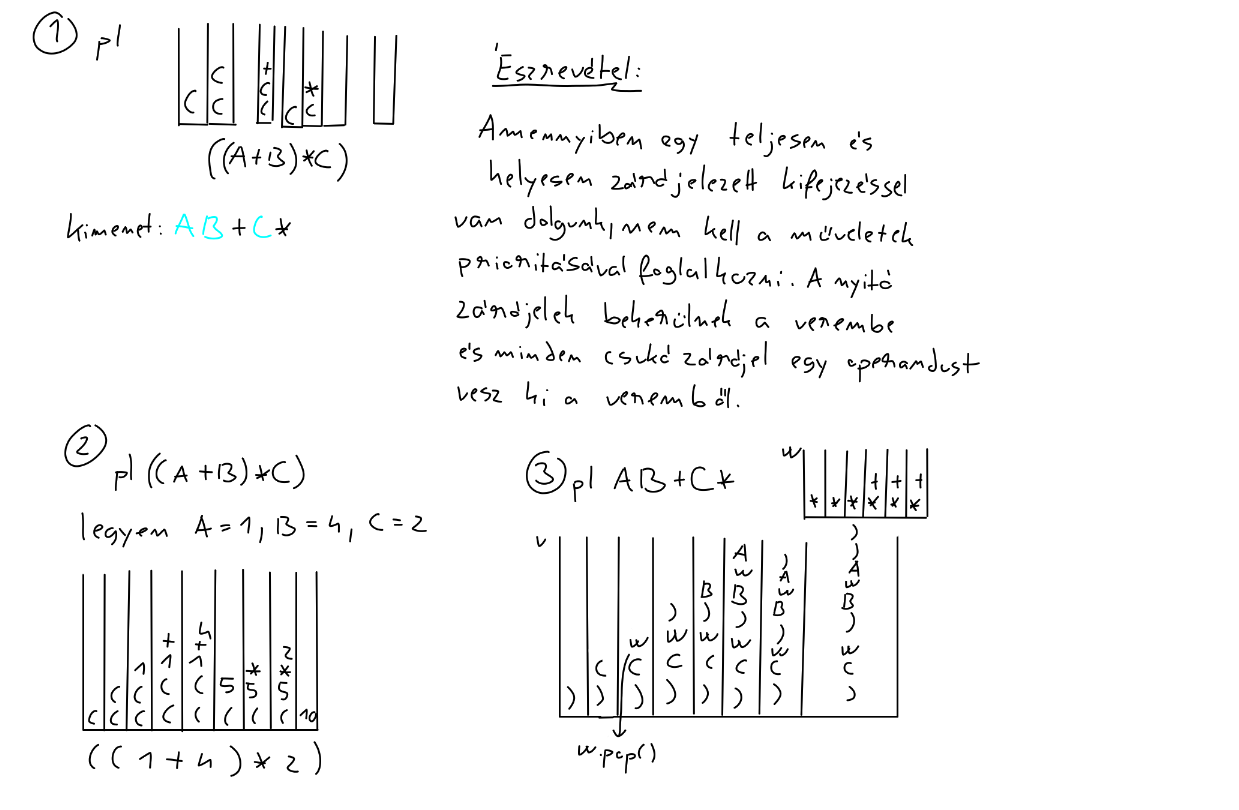 1 pl
( | ( ( | + ( ( | ( | * (
((A+B)*C)
kimenet: AB+C*
Észrevétel:
Amennyiben egy teljesen és
helyesen zárójelezett kifejezéssel
van dolgunk, nem kell a műveletek
prioritásával foglalkozni. A nyitó
zárójelek bekerülnek a verembe
és minden csukó zárójel egy operandust
vesz ki a veremből.
2 pl ((A+B)*C)
legyen A=1, B=4, C=2
( | ( ( | 1 ( ( | + 1 ( ( | 4 + 1 ( ( | 5 ( | * 5 ( | 2 * 5 ( | 10
((1+4)*2)
3 pl AB+C*
w
* | * | * | + * | + * | + *
v
) | C ) | w C ) | ) w C ) | B ) w C ) | A w B ) w C ) | ) A w B ) w C ) | ) ) A w B ) w C )
w.pop()